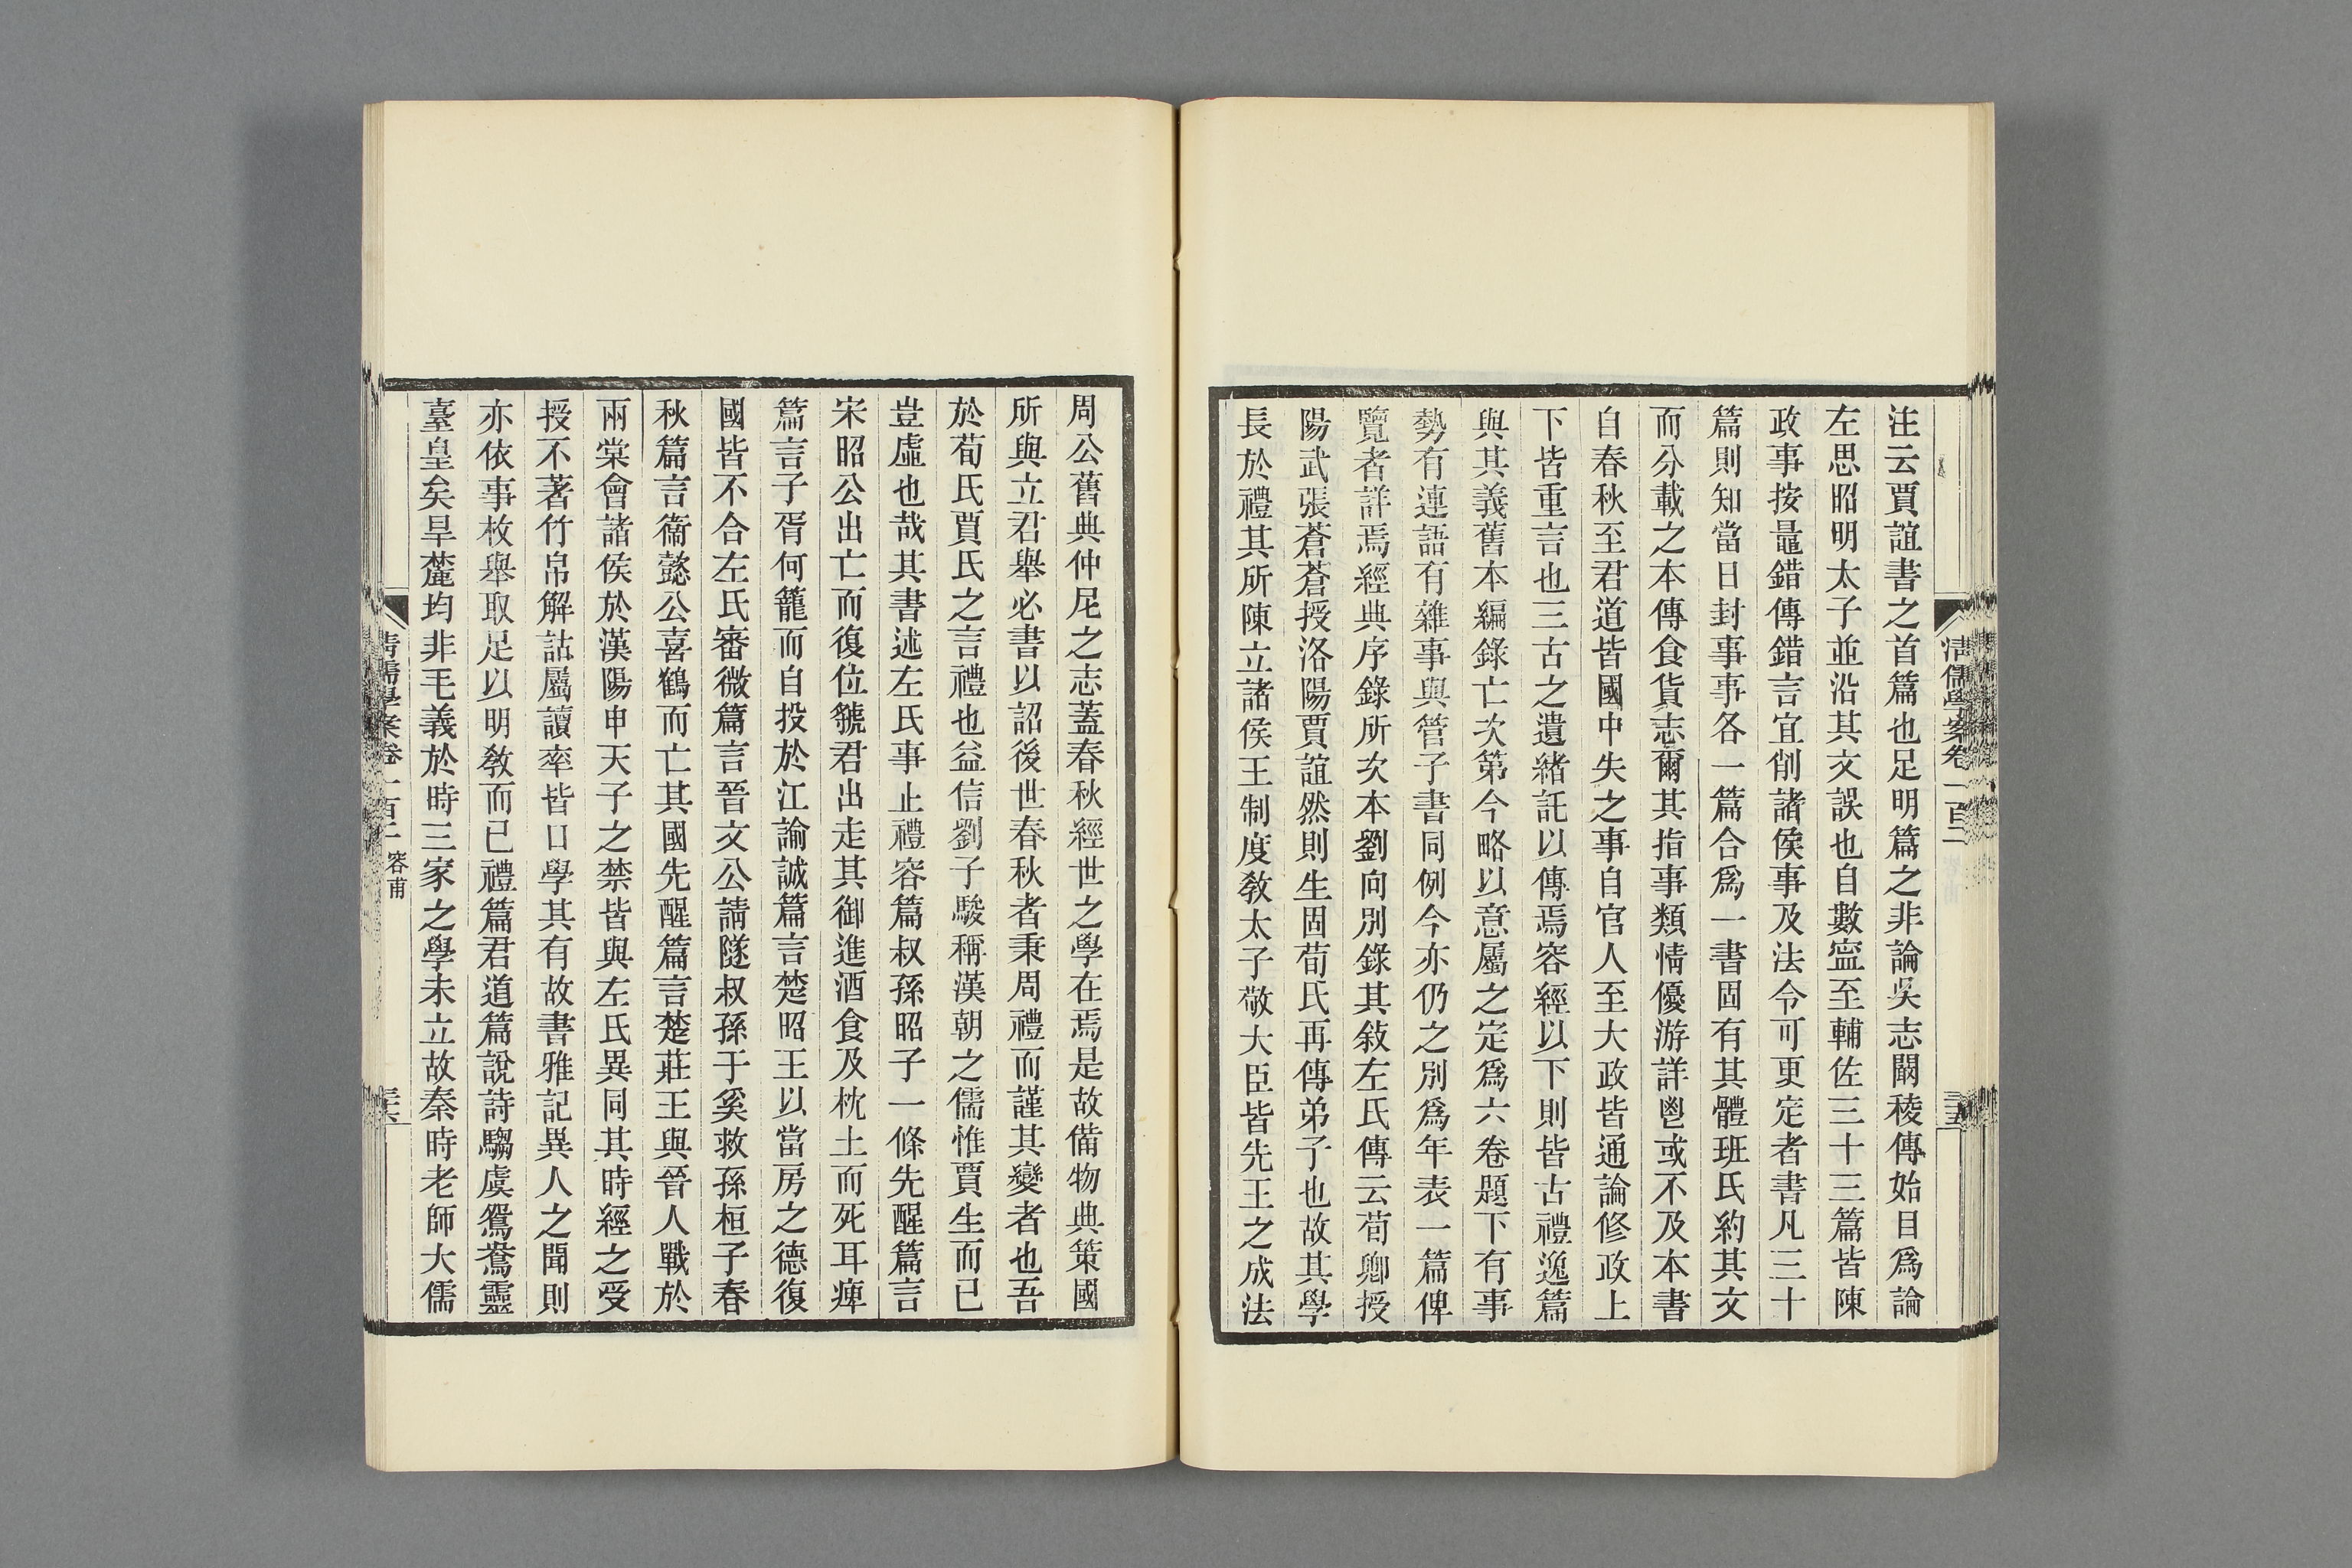 清儒學案卷一百二
三五
注云賈誼書之首篇也足明篇之非論吳志闞稜傳始目爲論
左思昭明太子並沿其文誤也自數寍至輔佐三十三篇皆陳
政事按鼂錯傳錯言宜削諸侯事及法令可更定者書凡三十
篇則知當日封事事各一篇合爲一書固有其體班氏約其文
而分載之本傳食貨志爾其指事類情優游詳鬯或不及本書
自春秋至君道皆國中失之事自官人至大政皆通論修政上
下皆重言也三古之遺緒託以傳焉容經以下則皆古禮逸篇
與其義舊本編錄亡次第今略以意屬之定爲六卷題下有事
勢有連語有雜事與管子書同例今亦仍之別爲年表一篇俾
覽者詳焉經典序錄所次本劉向別錄其敍左氏傳云荀卿授
陽武張蒼蒼授洛陽賈誼然則生固荀氏再傳弟子也故其學
長於禮其所陳立諸侯王制度敎太子敬大臣皆先王之成法
周公舊典仲尼之志蓋春秋經世之學在焉是故備物典策國
所與立君舉必書以詔後世春秋者秉周禮而謹其變者也吾
於荀氏賈氏之言禮也益信劉子駿稱漢朝之儒惟賈生而已
豈虛也哉其書述左氏事止禮容篇叔孫昭子一條先醒篇言
宋昭公出亡而復位虢君出走其御進酒食及枕土而死耳痺
篇言子胥何籠而自投於江諭誠篇言楚昭王以當房之德復
國皆不合左氏審微篇言晉文公請隧叔孫于奚救孫桓子春
秋篇言衞懿公喜鶴而亡其國先醒篇言楚莊王與晉人戰於
兩棠會諸侯於漢陽申天子之禁皆與左氏異同其時經之受
授不著竹帛解詁屬讀率皆口學其有故書雅記異人之聞則
亦依事枚舉取足以明敎而已禮篇君道篇說詩騶虞鴛鴦靈
臺皇矣旱麓均非毛義於時三家之學未立故秦時老師大儒
清儒學案卷一百二 容甫
三六